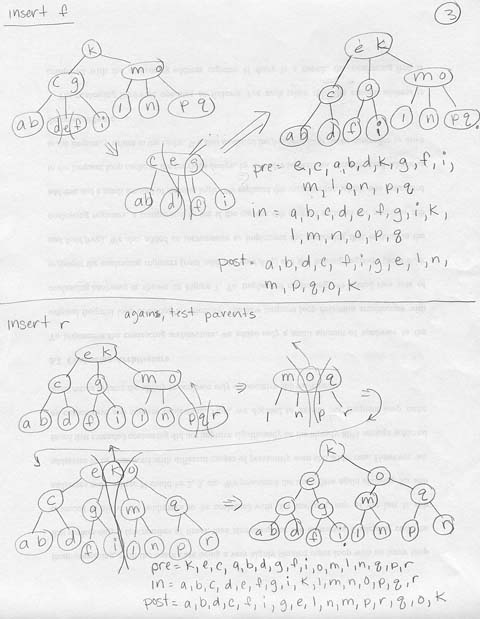 insert f
3
k
c g
m o
ab
def
i
l
n
pq
c e g
ab
d
f
i
e k
c
g
m o
ab
d
f
i
l
n
pq
pre = e, c, a, b, d, k, g, f, i,
m, l, o, n, p, q
in = a, b, c, d, e, f, g, i, k,
l, m, n, o, p, q
post = a, b, d, c, f, i, g, e, l, n,
m, p, q, o, k
insert r
agains, test parents
e k
c
g
m o
ab
d
f
i
l
n
pqr
m o q
l
n
p
r
e k o
c
g
m
q
ab
d
f
i
l
n
p
r
k
e
o
c
g
m
q
ab
d
f
i
l
n
p
r
pre = k, e, c, a, b, d, g, f, i, o, m, l, n, q, p, r
in = a, b, c, d, e, f, g, i, k, l, m, n, o, p, q, r
post = a, b, d, c, f, i, g, e, l, n, m, p, r, q, o, k